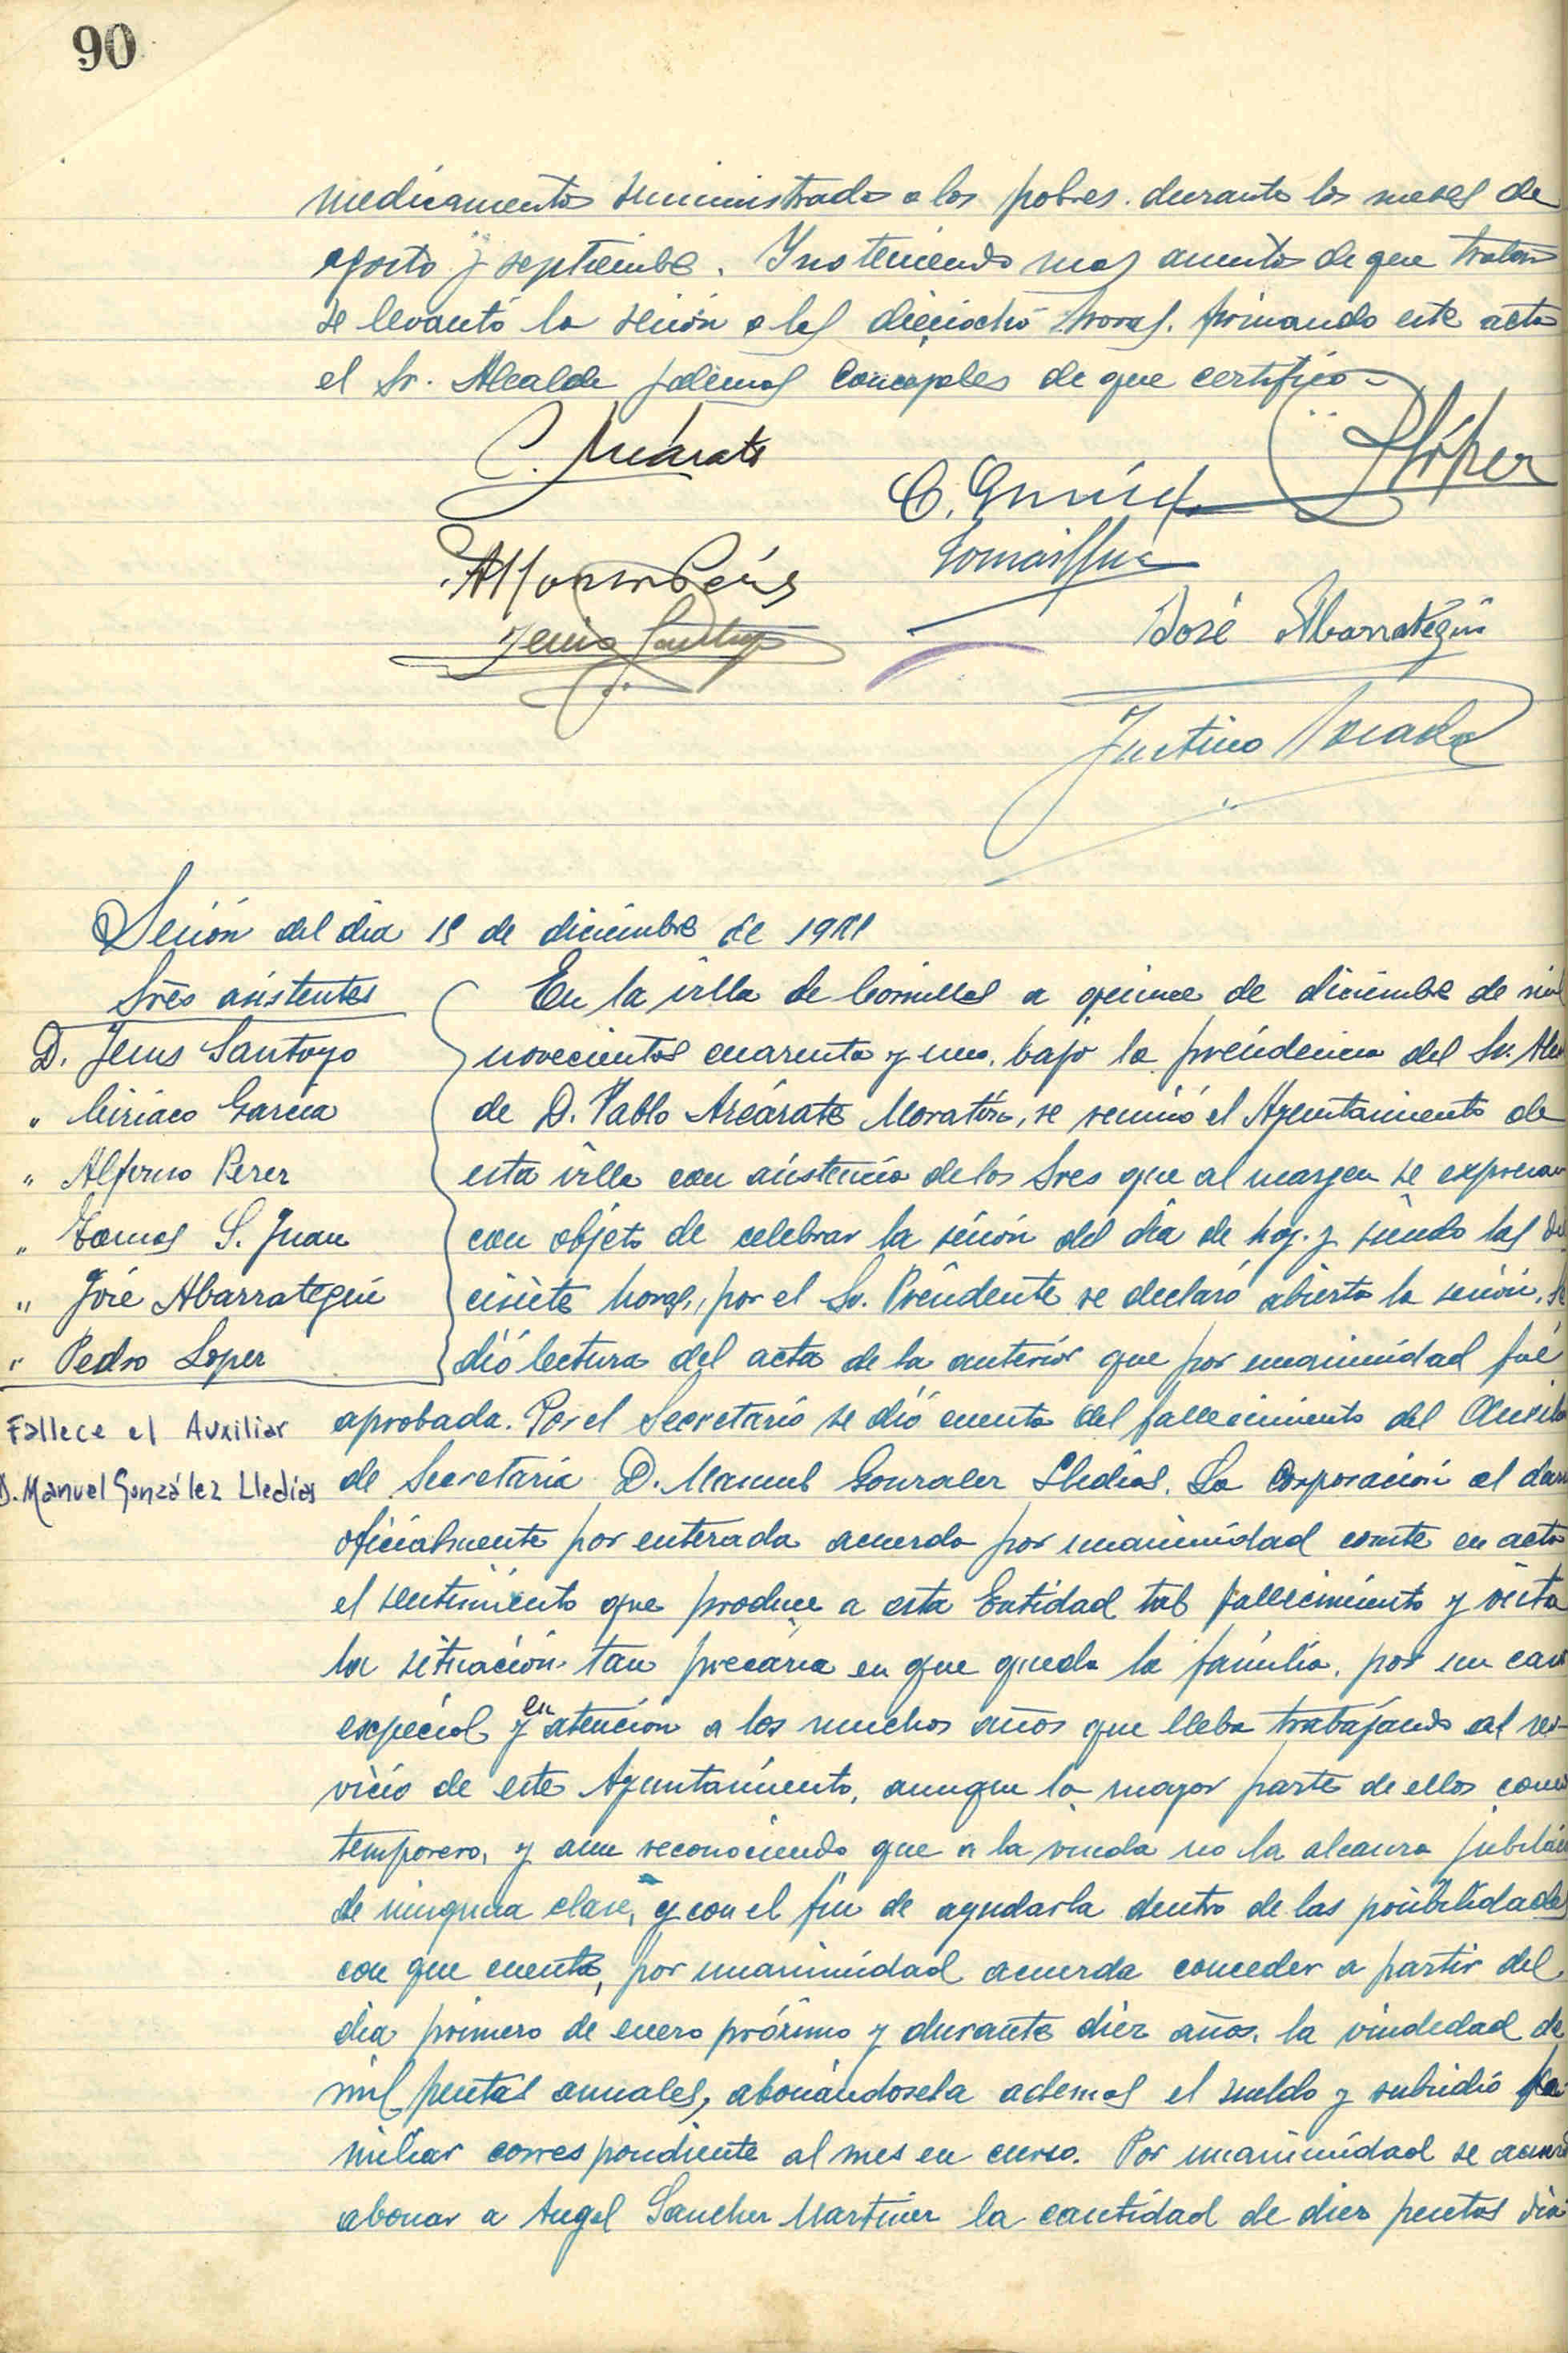 90
medicamentos suministrados a los pobres durante los meses de
agosto y septiembre. Y no teniendo mas asuntos de que tratar
se levantó la sesión a las dieciocho horas, firmando este acta
el Sr. Alcalde y demas Concejales de que certifico.-
P. López
C. García
José Abarrategui
Justino
Sesión del dia 15 de diciembre de 1941
Sres asistentes
D. Jesus Santoyo
" Ciriaco Garcia
" Alfonso Perez
" Tomas S. Juan
" José Abarrategui
" Pedro Lopez
Fallece el Auxiliar
D. Manuel González Lledias
En la villa de Comillas a quince de diciembre de mil
novecientos cuarenta y uno, bajo la presidencia del Sr. Alcal
de D. Pablo Azcárate Moratín, se reunió el Ayuntamiento de
esta villa con asistencia de los Sres que al margen se expresan
con objeto de celebrar la sesión del dia de hoy. y siendo las die
cisiete horas, por el Sr. Presidente se declaró abierta la sesión, se
dió lectura del acta de la anterior que por unanimidad fué
aprobada. Por el Secretario se dió cuenta del fallecimiento del Auxiliar
de Secretaria D. Manuel Gonzalez Lledias. La Corporación al darse
oficialmente por enterada acuerda por unanimidad conste en acta
el sentimiento que produce a esta Entidad tal fallecimiento y vista
la situación tan precaria en que queda la familia, por un caso
especial y en atención a los muchos años que lleba trabajando al ser-
vicio de este Ayuntamiento, aunque la mayor parte de ellos como
temporero, y aun reconociendo que a la viuda no la alcanza jubilación
de ninguna clase, y con el fin de ayudarla dentro de las posibilidades
con que cuenta, por unanimidad acuerda conceder a partir del
dia primero de enero próximo y durante diez años, la viudedad de
mil pesetas anuales, abonándosela ademas el sueldo y subsidio fa-
miliar correspondiente al mes en curso. Por unanimidad se acuerda
abonar a Angel Sanchez Martinez la cantidad de diez pesetas dia